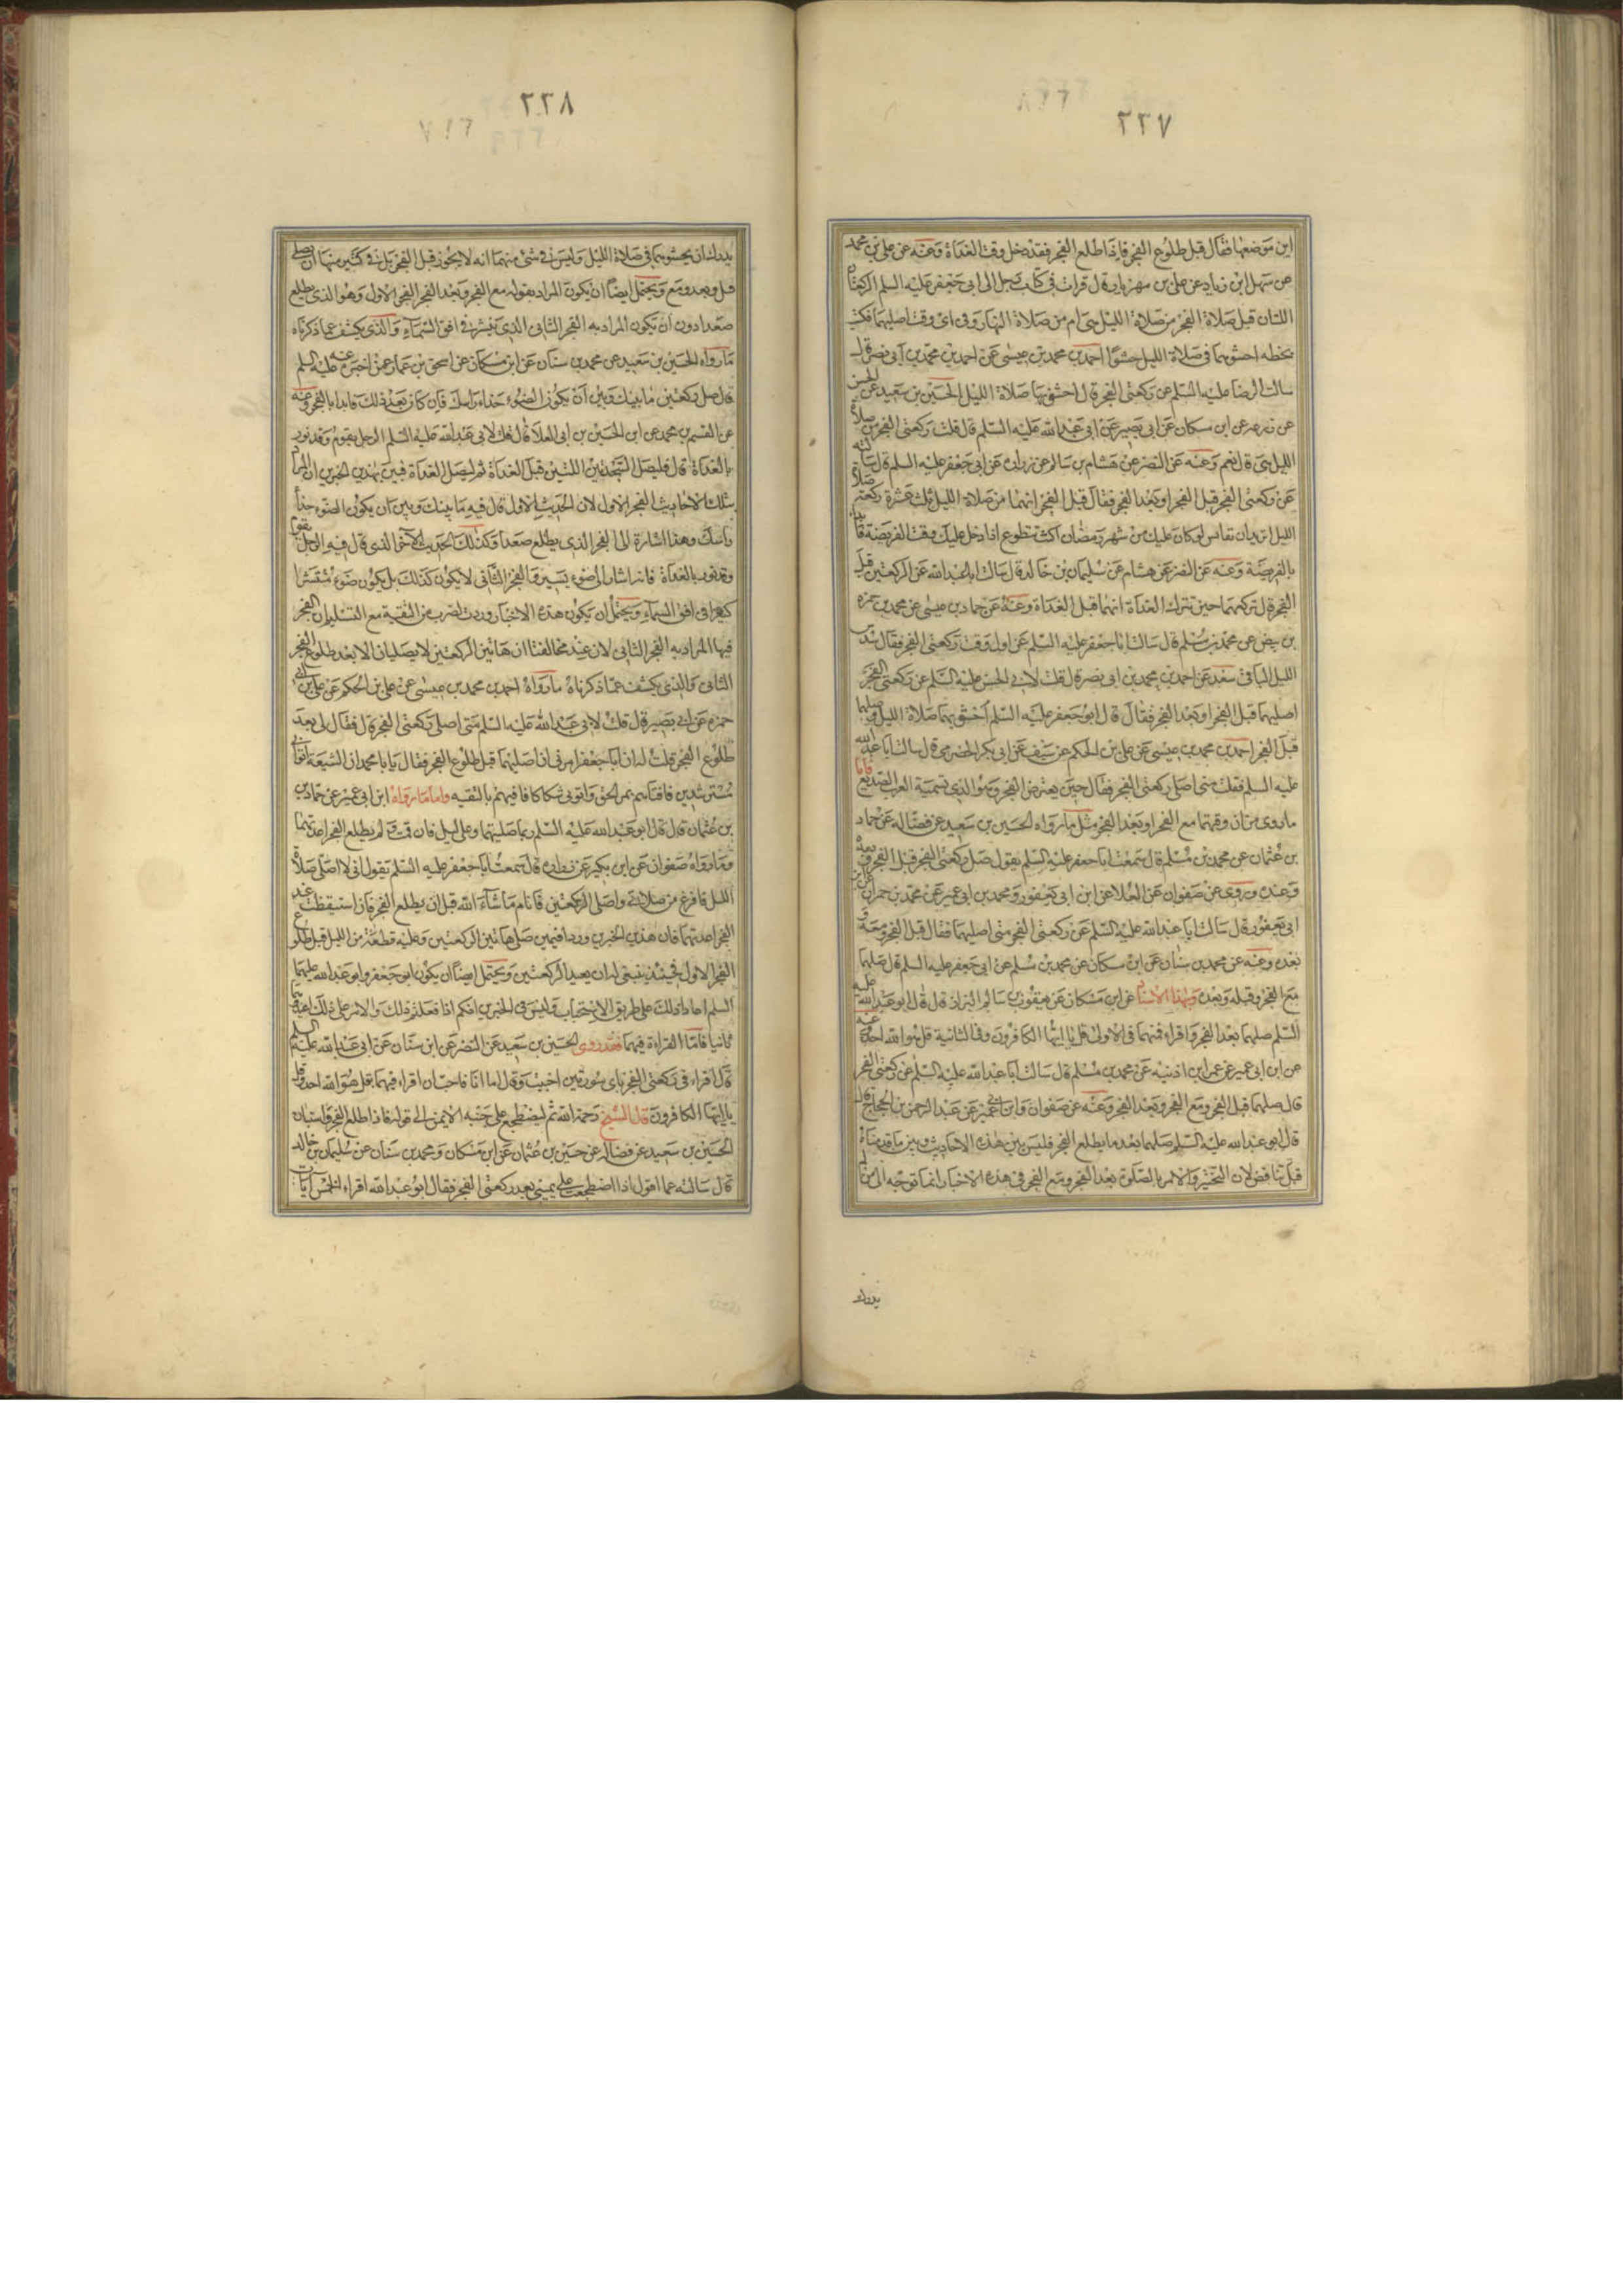 ٢٢٧
اين موضعهما فقال قبل طلوع الفجر فاذا طلع الفجر فقد دخل وقت الغداة وعنه عن علي بن محمد
عن سهل ابن زياد عن علي بن مهزيار قال قرات في كتاب رجل الى ابي جعفر عليه السلم الركعتان
اللتان قبل صلاة الفجر من صلاة الليل هي ام من صلاة النهار وفي اى وقت اصليهما فكتب
بخطه احشهما في صلاة الليل حشوا احمد بن محمد بن عيسى عن احمد بن محمد بن ابي نصر قال
سالت الرضا عليه السلم عن ركعتى الفجر قال احشو بهما صلاة الليل الحسين بن سعيد عن الحسن
عن زرعه عن ابن مسكان عن ابي بصير عن ابي عبد الله عليه السلم قال قلت ركعتى الفجر من صلاة
الليل هي قال نعم وعنه عن النضر عن هشام بن سالم عن زرارة عن ابي جعفر عليه السلم قال سالته
عن ركعتى الفجر قبل الفجر او بعد الفجر فقال قبل الفجر انهما من صلاة الليل ثلث عشرة ركعة صلاة
الليل اتريد ان تقايس لو كان عليك من شهر رمضان اكنت تطوع اذا دخل عليك وقت الفريضة فابدا
بالفريضة وعنه عن النضر عن هشام عن سليمان بن خالد قال سالت ابا عبد الله عن الركعتين قبل
الفجر قال تركعهما حين تترك الغداة انهما قبل الغداة وعنه عن حماد بن عيسى عن محمد بن حمزه
بن بيض عن محمد بن مسلم قال سالت ابا جعفر عليه السلم عن اول وقت ركعتى الفجر فقال سدس
الليل الباقى سعد عن احمد بن محمد بن ابي نصر قال قلت لابي الحسن عليه السلم عن ركعتى الفجر
اصليهما قبل الفجر او بعد الفجر فقال قال ابو جعفر عليه السلم احشو بهما صلاة الليل وصلهما
قبل الفجر احمد بن محمد بن عيسى عن علي بن الحكم عن سيف عن ابي بكر الحضرمي قال سالت ابا عبد الله
عليه السلم فقلت متى اصلي ركعتى الفجر فقال حين يعترض الفجر وهو الذي تسميه العرب الصديع فاما
ما روى من ان وقتهما مع الفجر او بعد الفجر مثل ما رواه الحسين بن سعيد عن فضاله عن حماد
بن عثمان عن محمد بن مسلم قال سمعت ابا جعفر عليه السلم يقول صل ركعتى الفجر قبل الفجر وبعده
وعنده وروى عن صفوان عن العلا عن ابن ابي يعفور ومحمد بن ابي عمير عن محمد بن حمران عن ابن
ابي يعفور قال سالت ابا عبد الله عليه السلم عن ركعتى الفجر متى اصليهما فقال قبل الفجر ومعه و
بعده وعنه عن محمد بن سنان عن ابن مسكان عن محمد بن مسلم عن ابي جعفر عليه السلم قال صلهما
مع الفجر وقبله وبعده وبهذا الاسناد عن ابن مسكان عن يعقوب بن سالم البزاز قال قال ابو عبد الله عليه
السلم صلهما بعد الفجر واقراء فيهما في الاولى قل يا ايها الكافرون وفي الثانية قل هو الله احد وعنه
عن ابن ابي عمير عن عمر ابن اذينه عن محمد بن مسلم قال سالت ابا عبد الله عليه السلم عن ركعتى الفجر
قال صلهما قبل الفجر ومع الفجر وبعد الفجر وعنه عن صفوان وابن ابي عمير عن عبد الرحمن بن الحجاج قال
قال ابو عبد الله عليه السلم صلهما بعد ما يطلع الفجر فليس بين هذه الاحاديث وبين ما قدمناه
قبل تناقض لان التخيير والامر بالصلوة بعد الفجر ومع الفجر في هذه الاخبار انما توجه الى من لم
يدرك ان
٢٢٨
يدرك ان يحشو بهما في صلاة الليل وليس في شئ منهما انه لا يجوز قبل الفجر بل في كثير منها ان يصلي
قبل وبعد ومع ويحتمل ايضا ان يكون المراد بقوله مع الفجر وبعد الفجر الفجر الاول وهو الذي يطلع
صعدا دون ان يكون المراد به الفجر الثاني الذي ينتشر في افق السماء والذي يكشف عما ذكرناه
ما رواه الحسين بن سعيد عن محمد بن سنان عن ابن مسكان عن اسحق بن عمار عمن اخبره عنه عليه السلم
قال صل ركعتين ما بينك وبين ان يكون الضوء حذاء راسك فان كان بعد ذلك فابدا بالفجر وعنه
عن القسم بن محمد عن ابن الحسين بن ابي العلا قال قلت لابي عبد الله عليه السلم الرجل يقوم وقد نور
بالغداة قال فليصل السجدتين اللتين قبل الغداة ثم ليصل الغداة فبين بهذين الخبرين ان المراد
بتلك الاحاديث الفجر الاول لان الحديث الاول قال فيه ما بينك وبين ان يكون الضوء حذا
راسك وهذا اشارة الى الفجر الذي يطلع صعدا وكذلك الحديث الاخر الذي قال فيه الرجل يقوم
وقد نور بالغداة فانه اشار الى ضوء يسير والفجر الثاني لا يكون كذلك بل يكون ضوء منتشرا
كثيرا في افق السماء ويحتمل ان يكون هذه الاخبار وردت لضرب من التقية مع التسليم ان الفجر
فيها المراد به الفجر الثاني لان عند مخالفنا ان هاتين الركعتين لا يصليان الا بعد طلوع الفجر
الثاني والذي يكشف عما ذكرناه ما رواه احمد بن محمد بن عيسى عن علي بن الحكم عن علي بن ابي
حمزه عن ابي بصير قال قلت لابي عبد الله عليه السلم متى اصلي ركعتى الفجر قال فقال لى بعد
طلوع الفجر قلت له ان ابا جعفر امرني ان اصليهما قبل طلوع الفجر فقال يا با محمد ان الشيعة اتوا ابي
مسترشدين فافتاهم بمر الحق واتوني شكاكا فافتيهم بالتقيه واما ما رواه ابن ابي عمير عن حماد بن
بن عثمان قال قال ابو عبد الله عليه السلم ربما صليتهما وعلى ليل فان قمت ولم يطلع الفجر اعدتهما
وما رواه صفوان عن ابن بكير عن زراره قال سمعت ابا جعفر عليه السلم يقول اني لا اصلي صلاة
الليل فافرغ من صلاتي واصلي الركعتين فانام ما شاء الله قبل ان يطلع الفجر فان استيقظت عند
الفجر اعدتهما فان هذين الخبرين وردا فيمن صلى هاتين الركعتين وعليه قطعة من الليل قبل طلوع
الفجر الاول فحينئذ ينبغى له ان يعيد الركعتين ويحتمل ايضا ان يكون ابو جعفر وابو عبد الله عليهما
السلم اعادا ذلك على طريق الاستحباب وليس في الخبرين انكم اذا فعلتم ذلك والامر على ذلك اعيدوهما
ثانيا فاما القراءة فيهما فقد روى الحسين بن سعيد عن النضر عن ابن سنان عن ابي عبد الله عليه السلم
قال اقراء في ركعتى الفجر باى سورتين احببت وقال اما انا فاحب ان اقراء فيهما بقل هو الله احد وقل
يا ايها الكافرون قال الشيخ رحمة الله ثم ليضطجع على جنبه الايمن الى قوله فاذا طلع الفجر واستبان
الحسين بن سعيد عن فضاله عن حسين بن عثمان عن ابن مسكان ومحمد بن سنان عن سليمان بن خالد
قال سالته عما اقول اذا اضطجعت على يميني بعد ركعتى الفجر فقال ابو عبد الله اقراء الخمس ايات